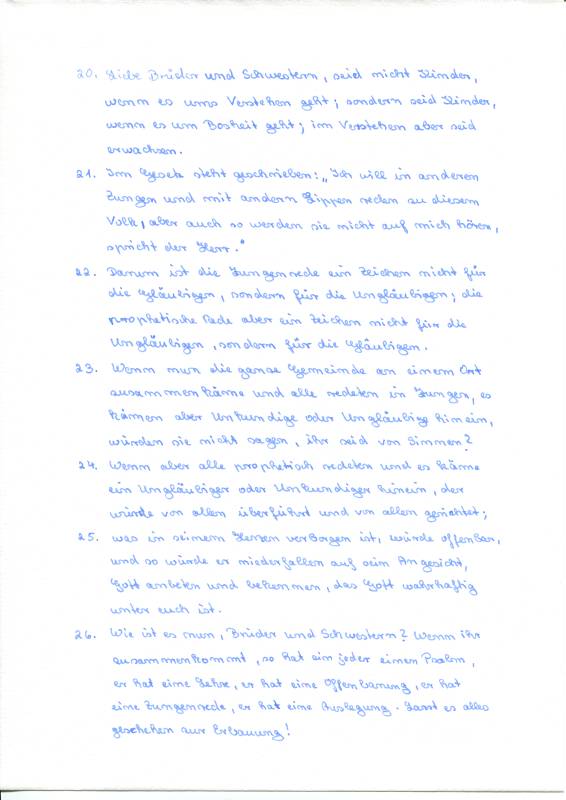 20. Liebe Brüder und Schwestern, seid nicht Kinder,
wenn es ums Verstehen geht; sondern seid Kinder,
wenn es um Bosheit geht; im Verstehen aber seid
erwachsen.
21. Im Gesetz steht geschrieben: „Ich will in anderen
Zungen und mit andern Lippen reden zu diesem
Volk, aber auch so werden sie nicht auf mich hören,
spricht der Herr."
22. Darum ist die Zungenrede ein Zeichen nicht für
die Gläubigen, sondern für die Ungläubigen; die
prophetische Rede aber ein Zeichen nicht für die
Ungläubigen, sondern für die Gläubigen.
23. Wenn nun die ganze Gemeinde an einem Ort
zusammenkäme und alle redeten in Zungen, es
kämen aber Unkundige oder Ungläubige hinein,
würden sie nicht sagen, ihr seid von Sinnen?
24. Wenn aber alle prophetisch redeten und es käme
ein Ungläubiger oder Unkundiger hinein, der
würde von allen überführt und von allen gerichtet;
25. was in seinem Herzen verborgen ist, würde offenbar,
und so würde er niederfallen auf sein Angesicht,
Gott anbeten und bekennen, das Gott wahrhaftig
unter euch ist.
26. Wie ist es nun, Brüder und Schwestern? Wenn ihr
zusammenkommt, so hat ein jeder einen Psalm,
er hat eine Lehre, er hat eine Offenbarung, er hat
eine Zungenrede, er hat eine Auslegung. Lasst es alles
geschehen zur Erbauung!